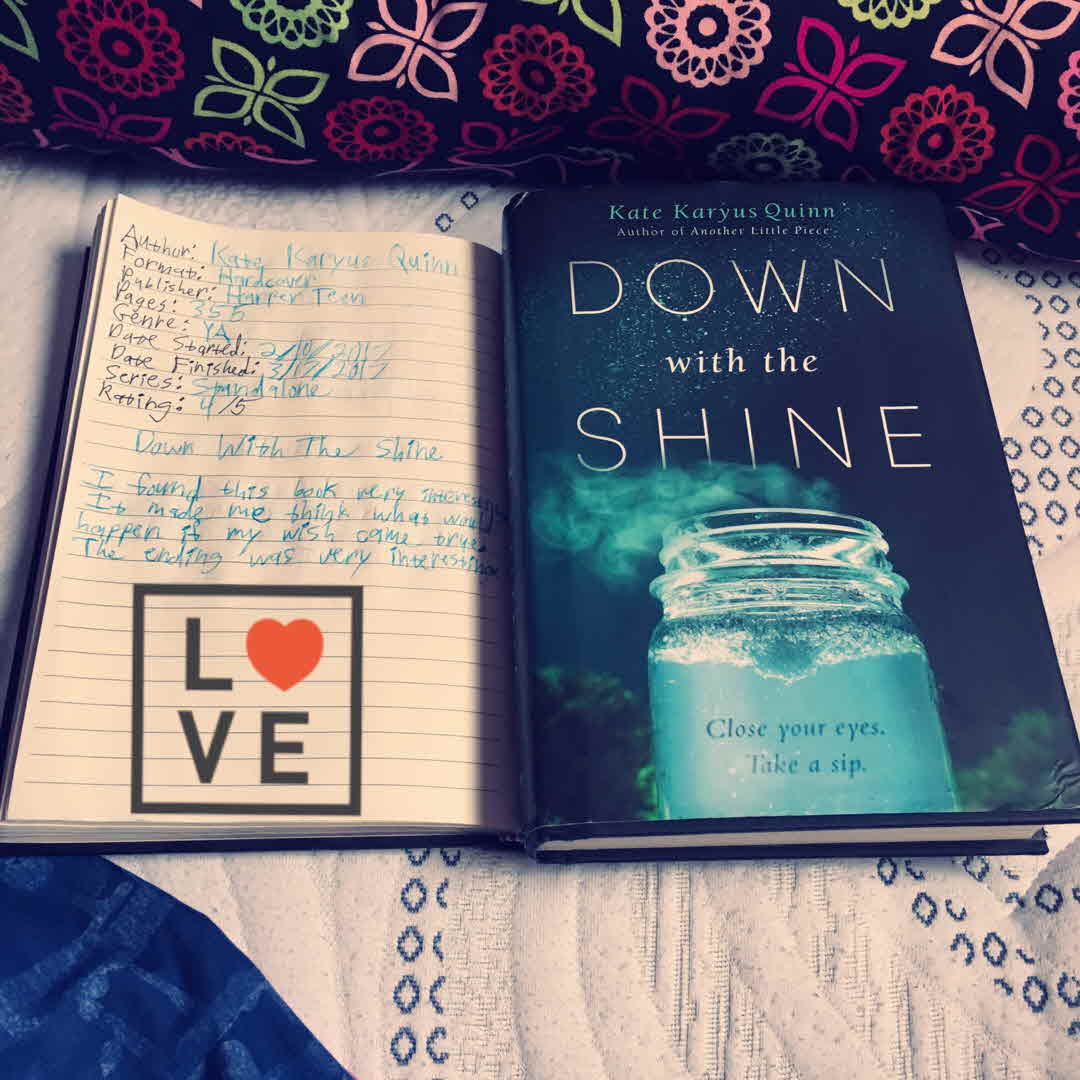 Author: Kate Karyus Quinn
Format: Hardcover
Publisher: Harper Teen
Pages: 355
Genre: YA
Date Started: 2/10/2017
Date Finished: 3/17/2017
Series: Standalone
Rating: 4/5
Down With The Shine
I found this book very interesting
It made me think what would
happen if my wish came true.
The ending was very interesting
L VE
Kate Karyus Quinn
Author of Another Little Piece
DOWN
with the
SHINE
Close your eyes.
Take a sip.